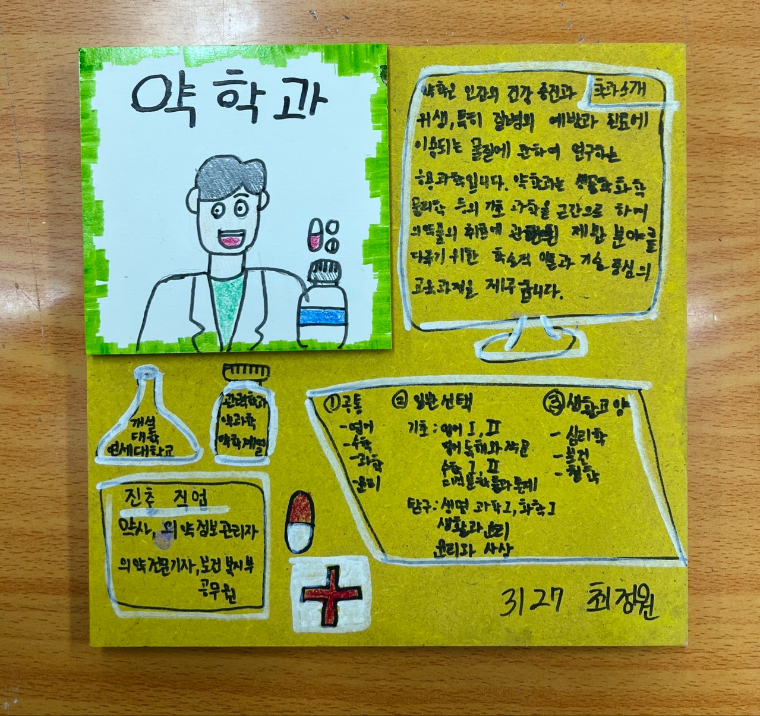 약학과
학과소개
약학은 인간의 건강 증진과
위생, 특히 질병의 예방과 진료에
이용되는 물질에 관하여 연구하는
응용과학입니다. 약학과는 생물학 화학
물리학 등의 기초 과학을 근간으로 하여
의약품의 취급에 관련된 제반 분야를
다루기 위한 특수적 이론과 기술 중심의
교육과정을 제공합니다.
개설
대학
연세대학교
관련학과
약과학과
약학계열
진출 직업
약사, 의약정보관리자
의약전문기자, 보건복지부
공무원
① 공통
- 영어
- 수학
- 과학
- 윤리
② 일반선택
기초 : 영어 I, II
영어 독해와 작문
수학 I, II
탐구 : 생명 과학 I, 화학 I
생활과 윤리
윤리와 사상
③ 생활교양
- 심리학
- 보건
- 철학
3127 최정원